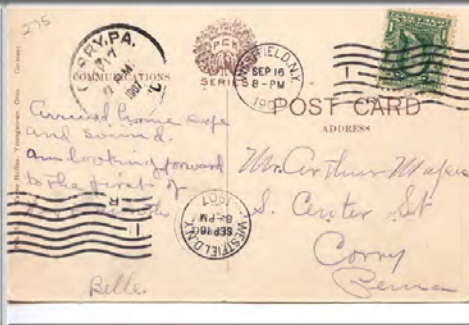 275
CORRY, PA.
7
1907
COMMUNICATIONS
PCK
SERIES
WESTFIELD, N.Y.
SEP 16
8-PM
190
POST CARD
ADDRESS
Arrived home safe
and sound.
am looking forward
to the first of
Belle.
WESTFIELD, N.Y.
SEP 16
8-PM
1907
Mr. Arthur
S. Center St
Corry
Penna